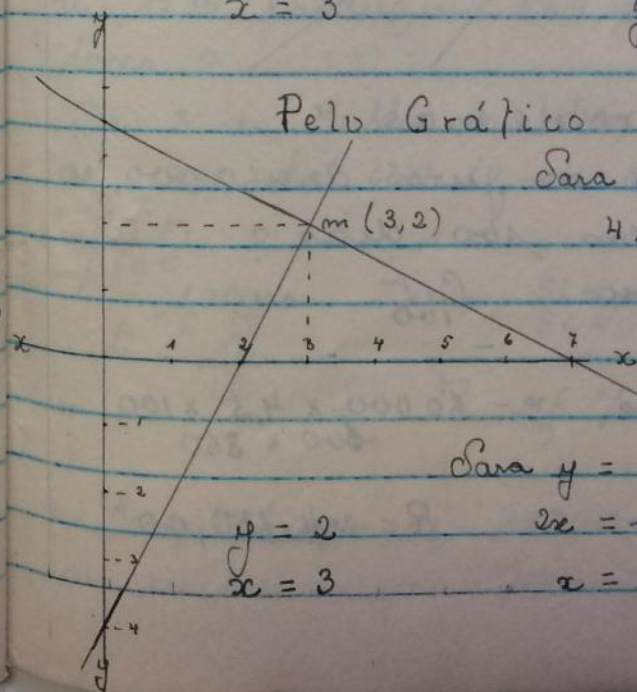 x = 3
y
Pelo Gráfico
Para
m (3,2)
4
x 1 2 3 4 5 6 7 x
-1
Para y =
-2
y = 2 2x = -
-3
x = 3 x =
-4
y